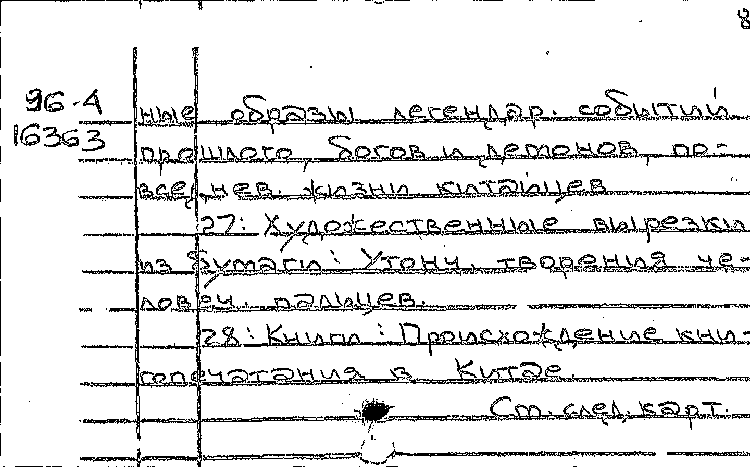 8
96-4
16363
ные образы легендар. событий
прошлого, богов и демонов, по-
вседнев. жизни китайцев
27: Художественные вырезки
из бумаги: Утонч. творения че-
ловеч. пальцев.
28: Книги: Происхождение кни-
гопечатания в Китае.
См. след. карт.